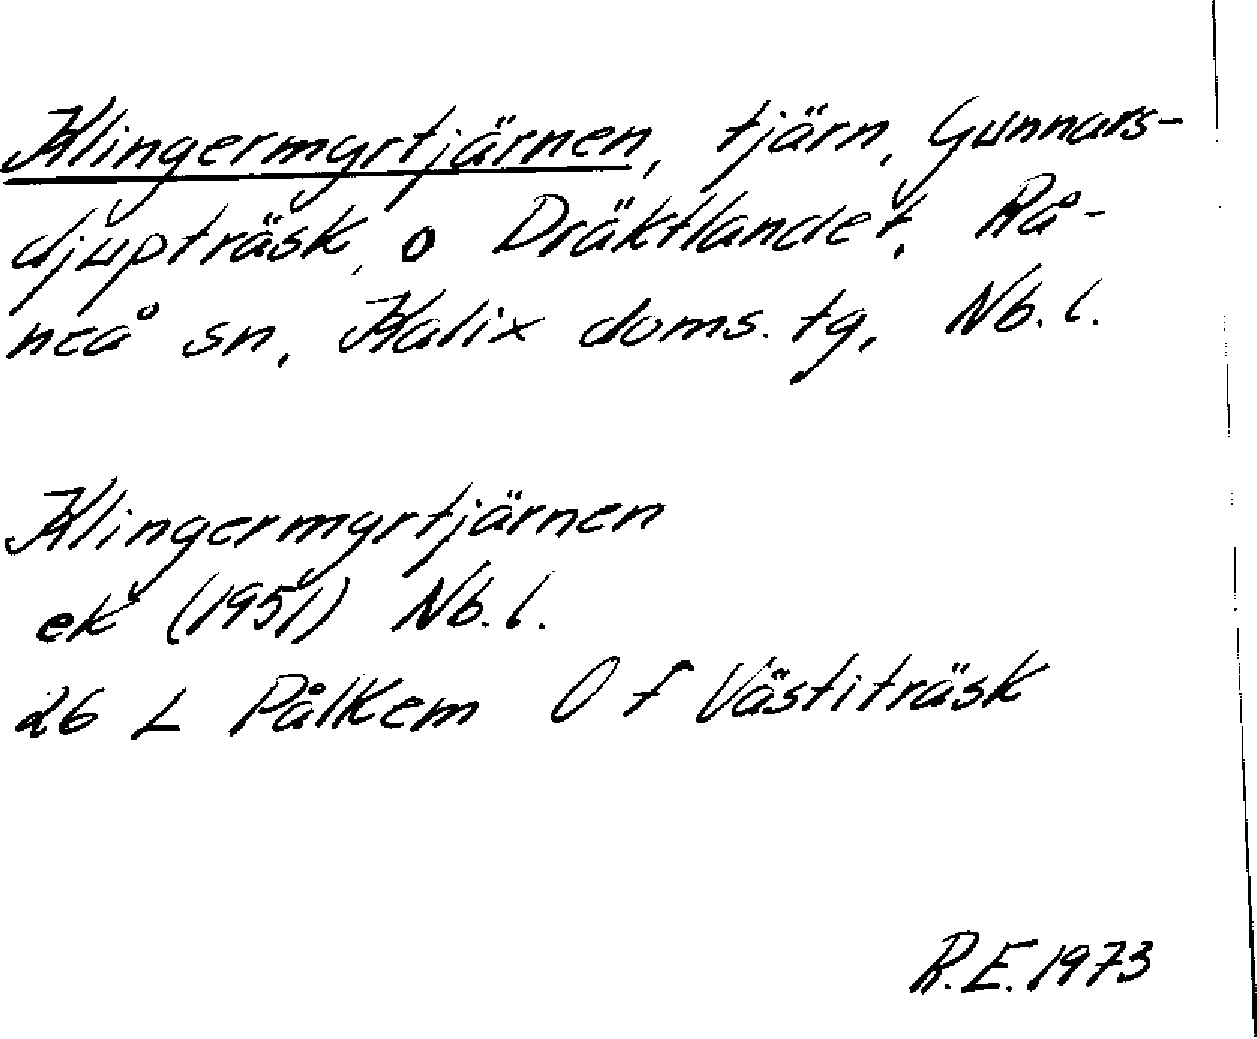 Klingermyrtjärnen, tjärn, Gunnars-
djupträsk, o Dräktlandet, Rå-
neå sn, Kalix doms. tg, Nb. l.
Klingermyrtjärnen
ek (1951) Nb. l.
26 L Pålkem O f Västiträsk
R.E. 1973